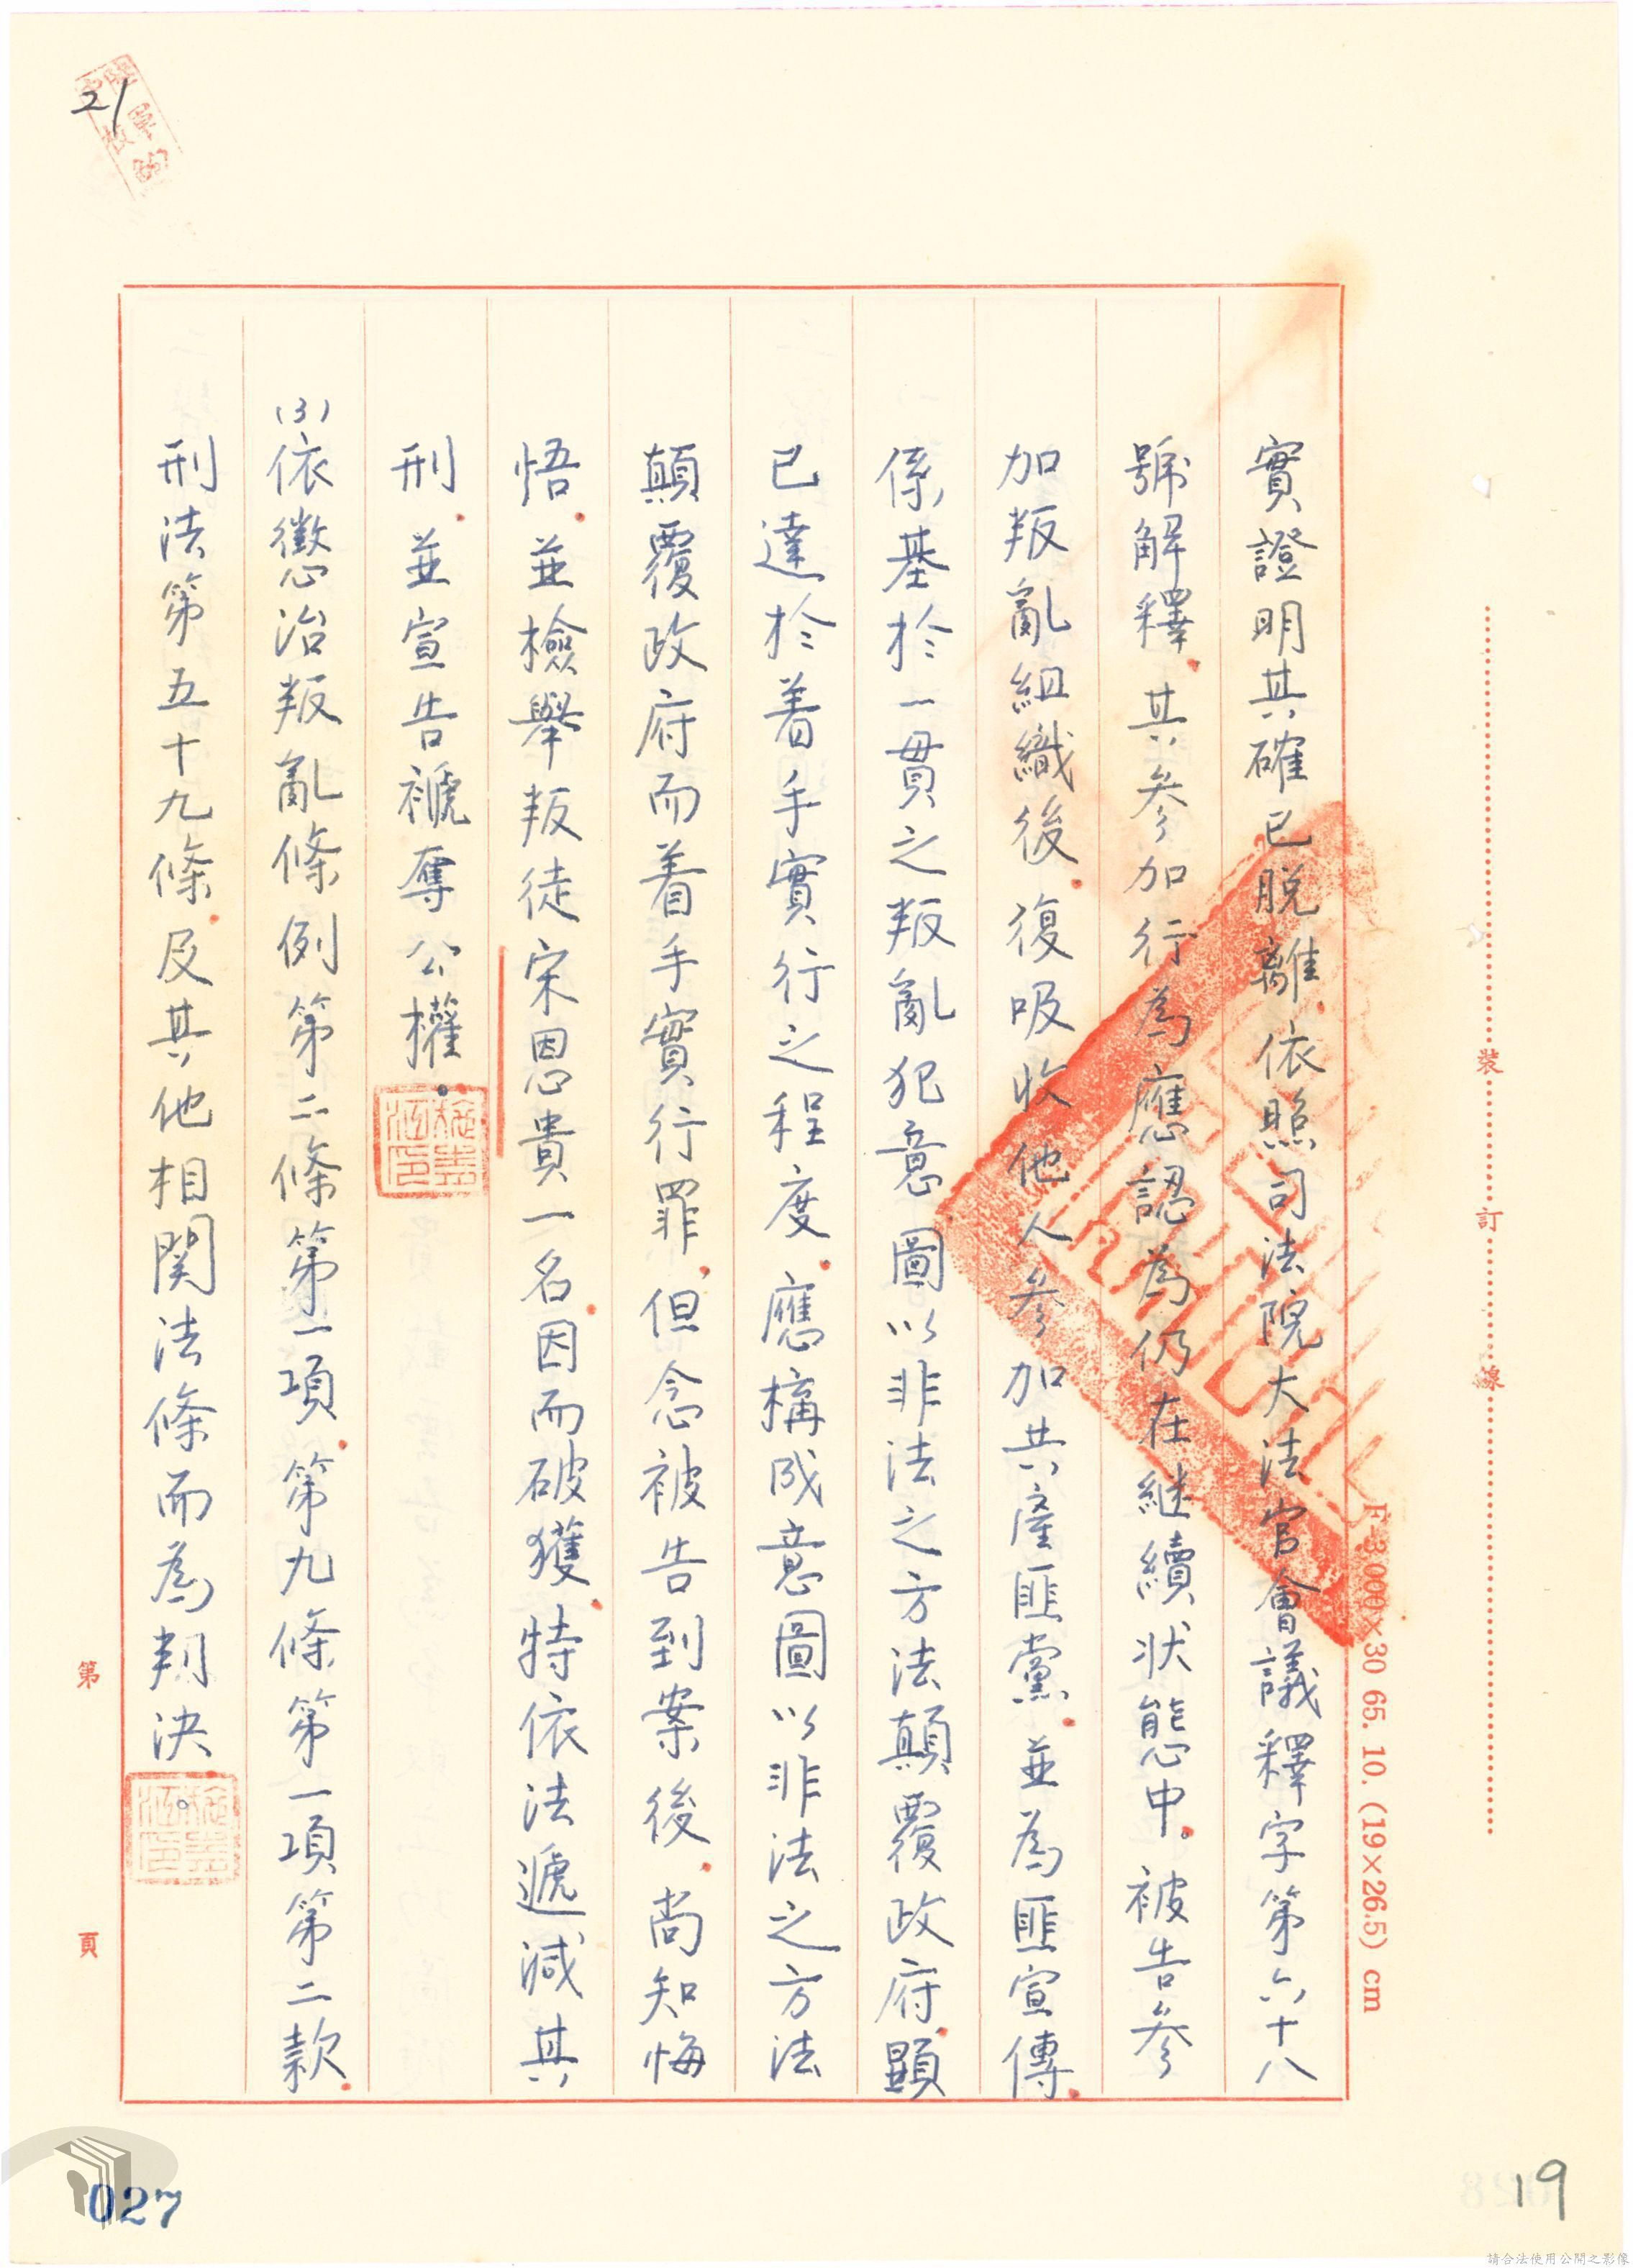 21
實證明其確已脫離、依照司法院大法官會議釋字第六十八
號解釋、其參加行為應認為仍在継續狀態中。被告參
加叛亂組織後、復吸收他人參加共產匪黨、並為匪宣傳、
係基於一貫之叛亂犯意、圖以非法之方法顛覆政府、顯
已達於着手實行之程度、應構成意圖以非法之方法
顛覆政府而着手實行罪、但念被告到案後、尚知悔
悟、並檢舉叛徒宋恩貴一名、因而破獲、特依法遞減其
刑、並宣告褫奪公權。
(3)依懲治叛亂條例第二條第一項、第九條第一項第二款、
刑法第五十九條、及其他相関法條而為判決。
裝 訂 線
F-3,000×30 65. 10. (19×26.5) cm
第 頁
027
19
請合法使用公開之影像